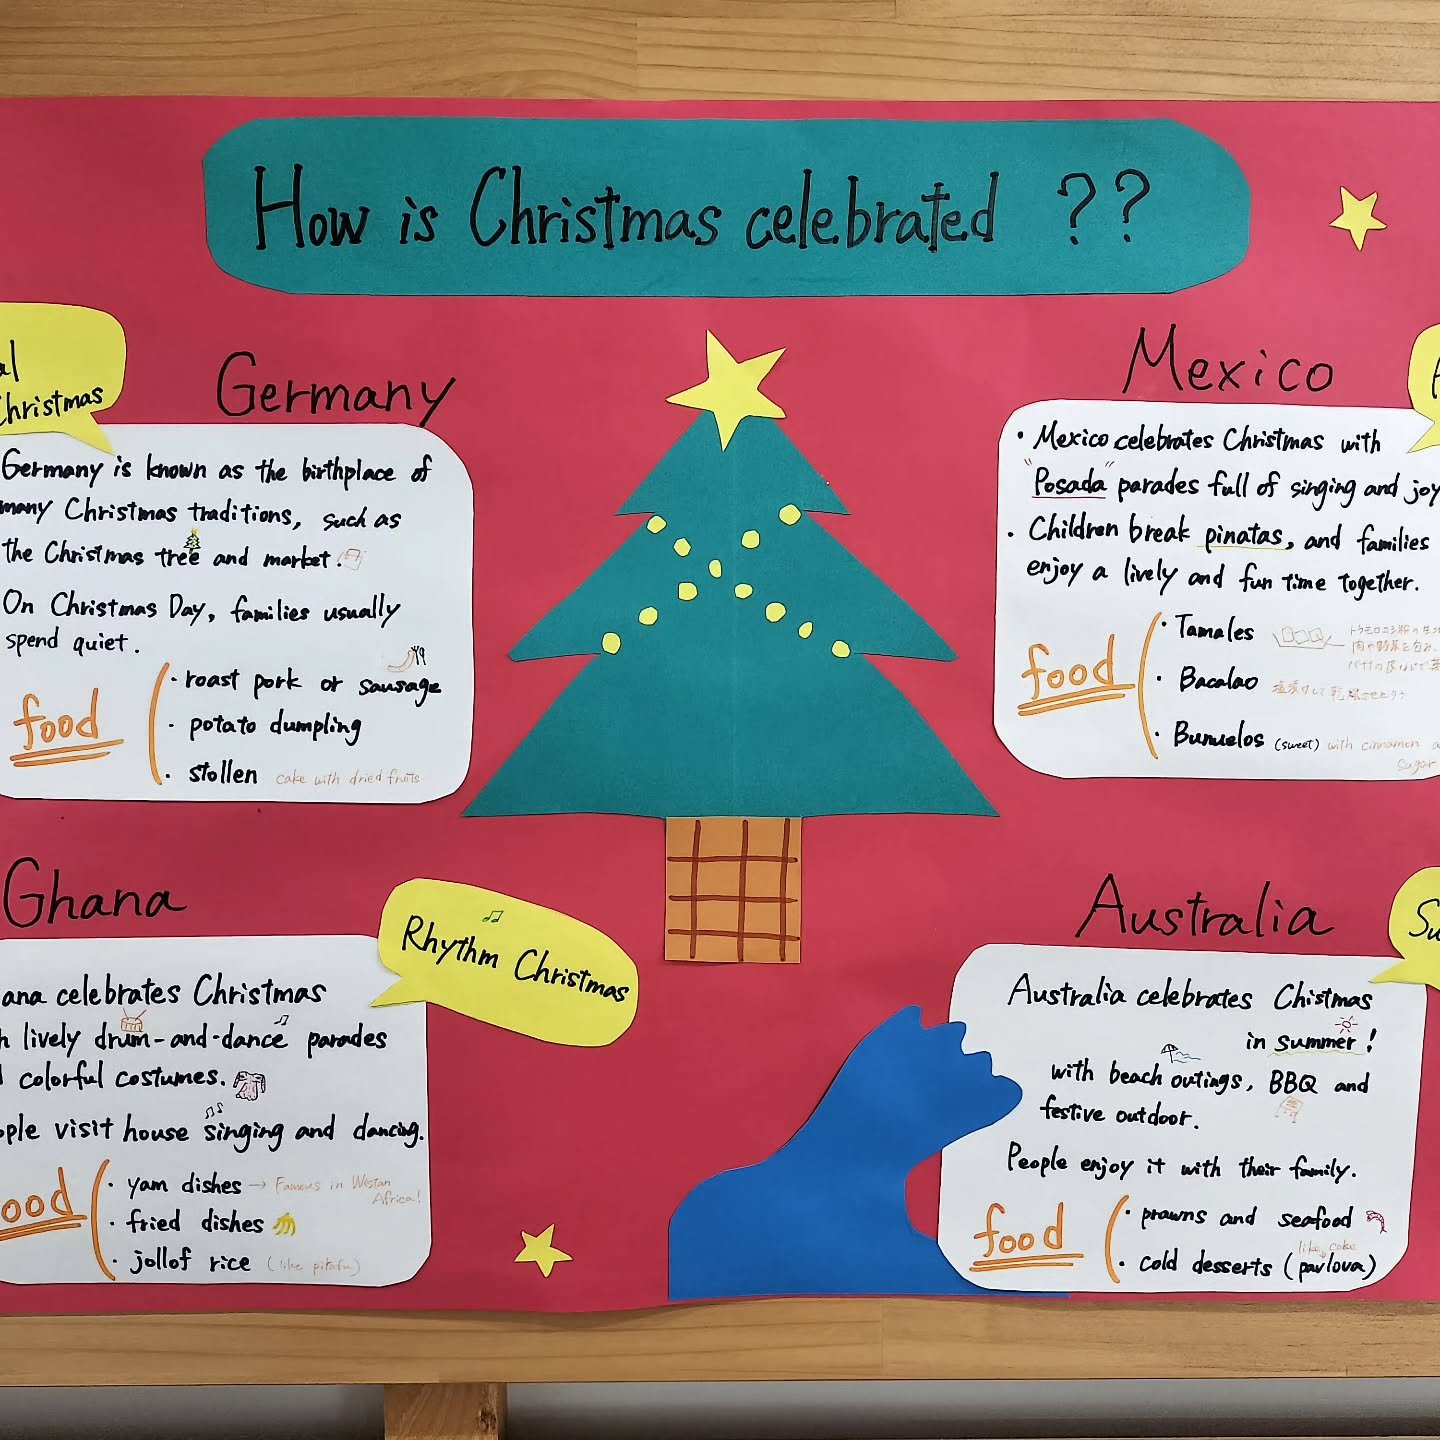 How is Christmas celebrated ??
Christmas
Germany
Germany is known as the birthplace of
many Christmas traditions, such as
the Christmas tree and market.
On Christmas Day, families usually
spend quiet.
food
・roast pork or sausage
・potato dumpling
・stollen cake with dried fruits
Mexico
・Mexico celebrates Christmas with
"Posada" parades full of singing and joy
・Children break pinatas, and families
enjoy a lively and fun time together.
food
・Tamales
・Bacalao 塩漬けして乾燥させたタラ
・Bunuelos (sweet) with cinnamon
sugar
Ghana
celebrates Christmas
lively drum-and-dance parades
colorful costumes.
visit house singing and dancing.
・yam dishes → Famous in Westan
Africa!
・fried dishes
・jollof rice (like pilafu)
Rhythm Christmas
Australia
Australia celebrates Chistmas
in summer!
with beach outings, BBQ and
festive outdoor.
People enjoy it with their family.
food
・prawns and seafood
like cake
・cold desserts (pavlova)